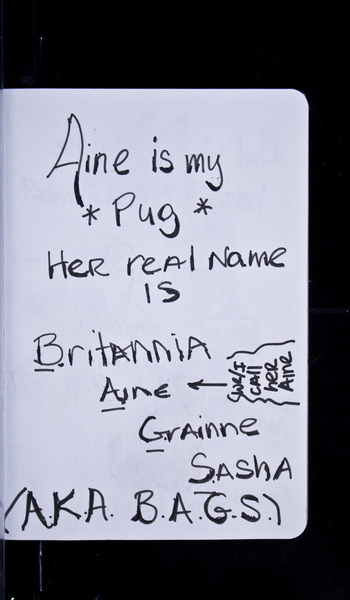 Aine is my
* Pug *
Her real name
is
Britannia
Aine ←
(we/I
call
her
Aine
Grainne
Sasha
(A.K.A. B.A.G.S.)